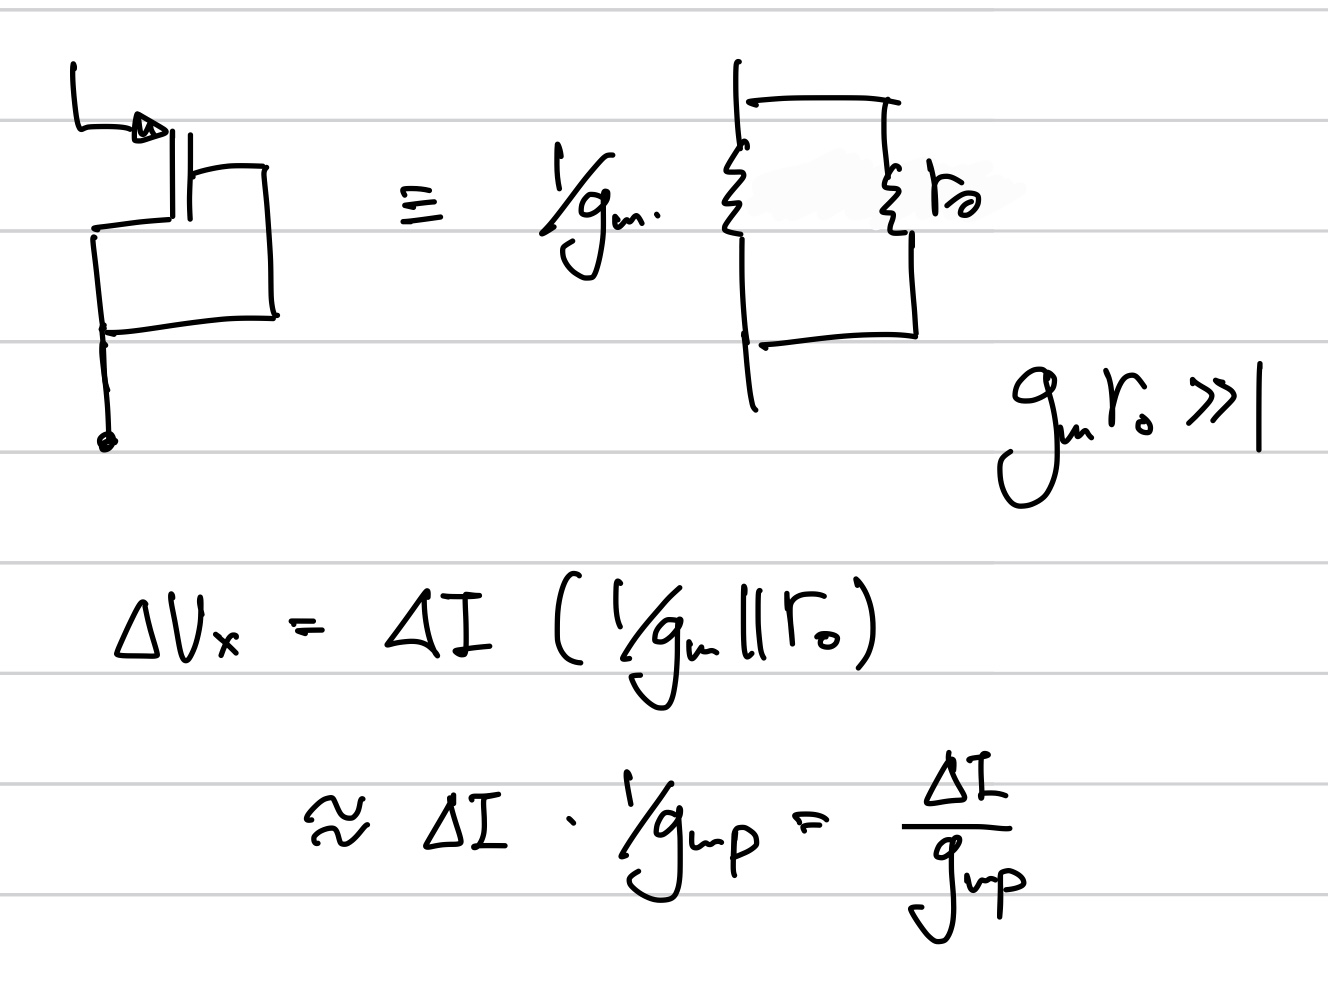 ≡ 1/gm. r₀
gm r₀ >> 1
ΔVx = ΔI (1/gm || r₀)
≈ ΔI · 1/gmp = ΔI/gmp